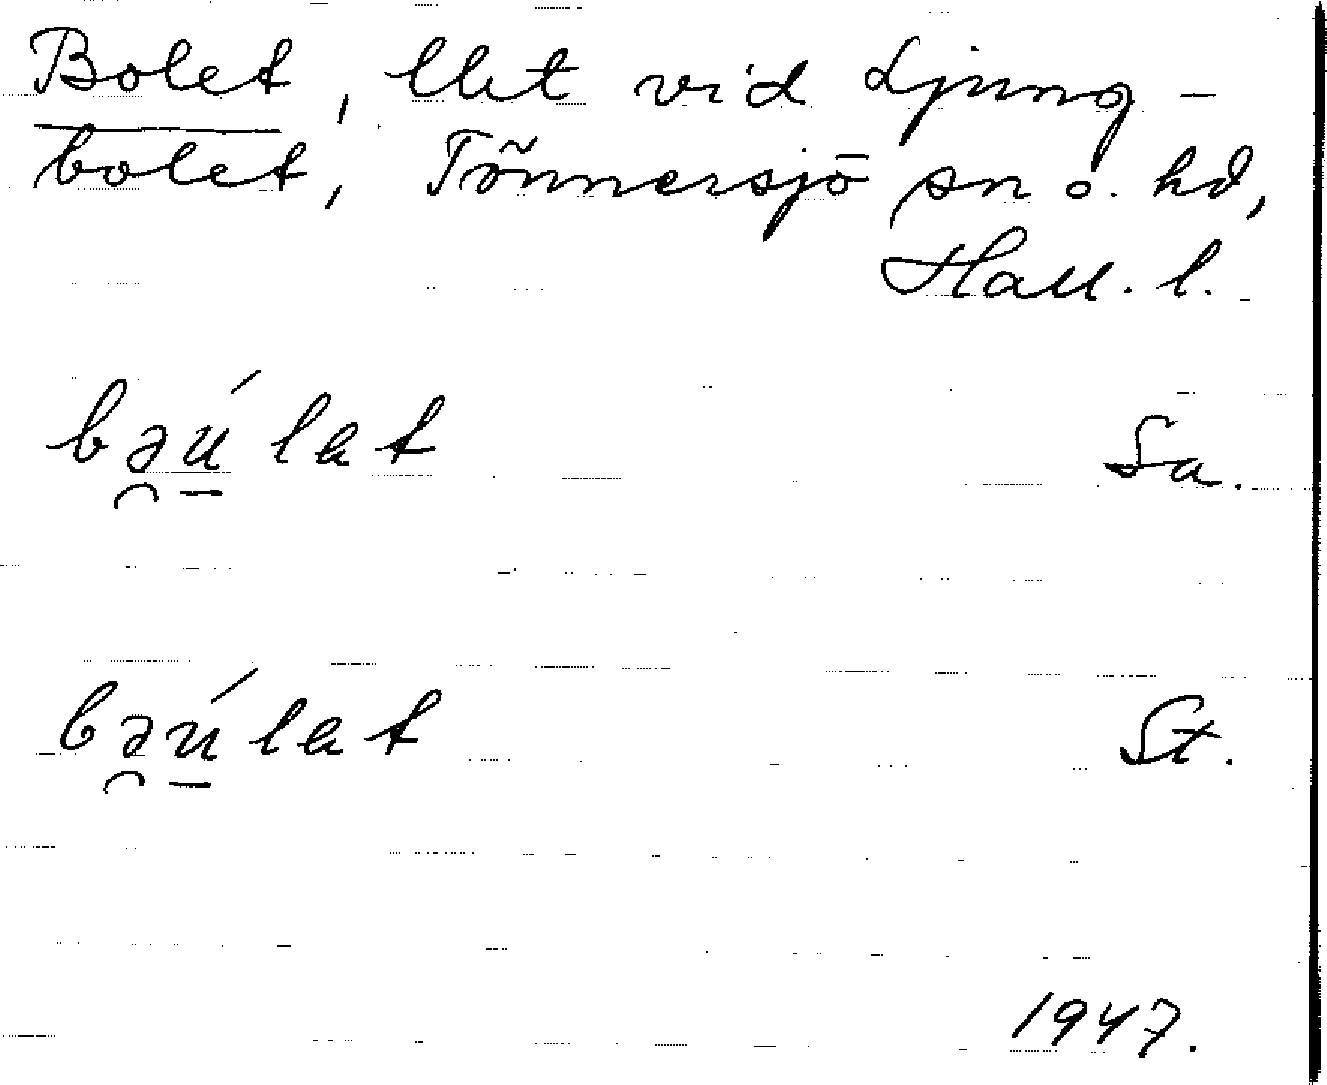 Bolet, llet vid Ljung-
bolet, Tönnersjö sn o. hd,
Hall. l.
bə̯ú̱lat Sa.
bə̯ú̱lat St.
1947.